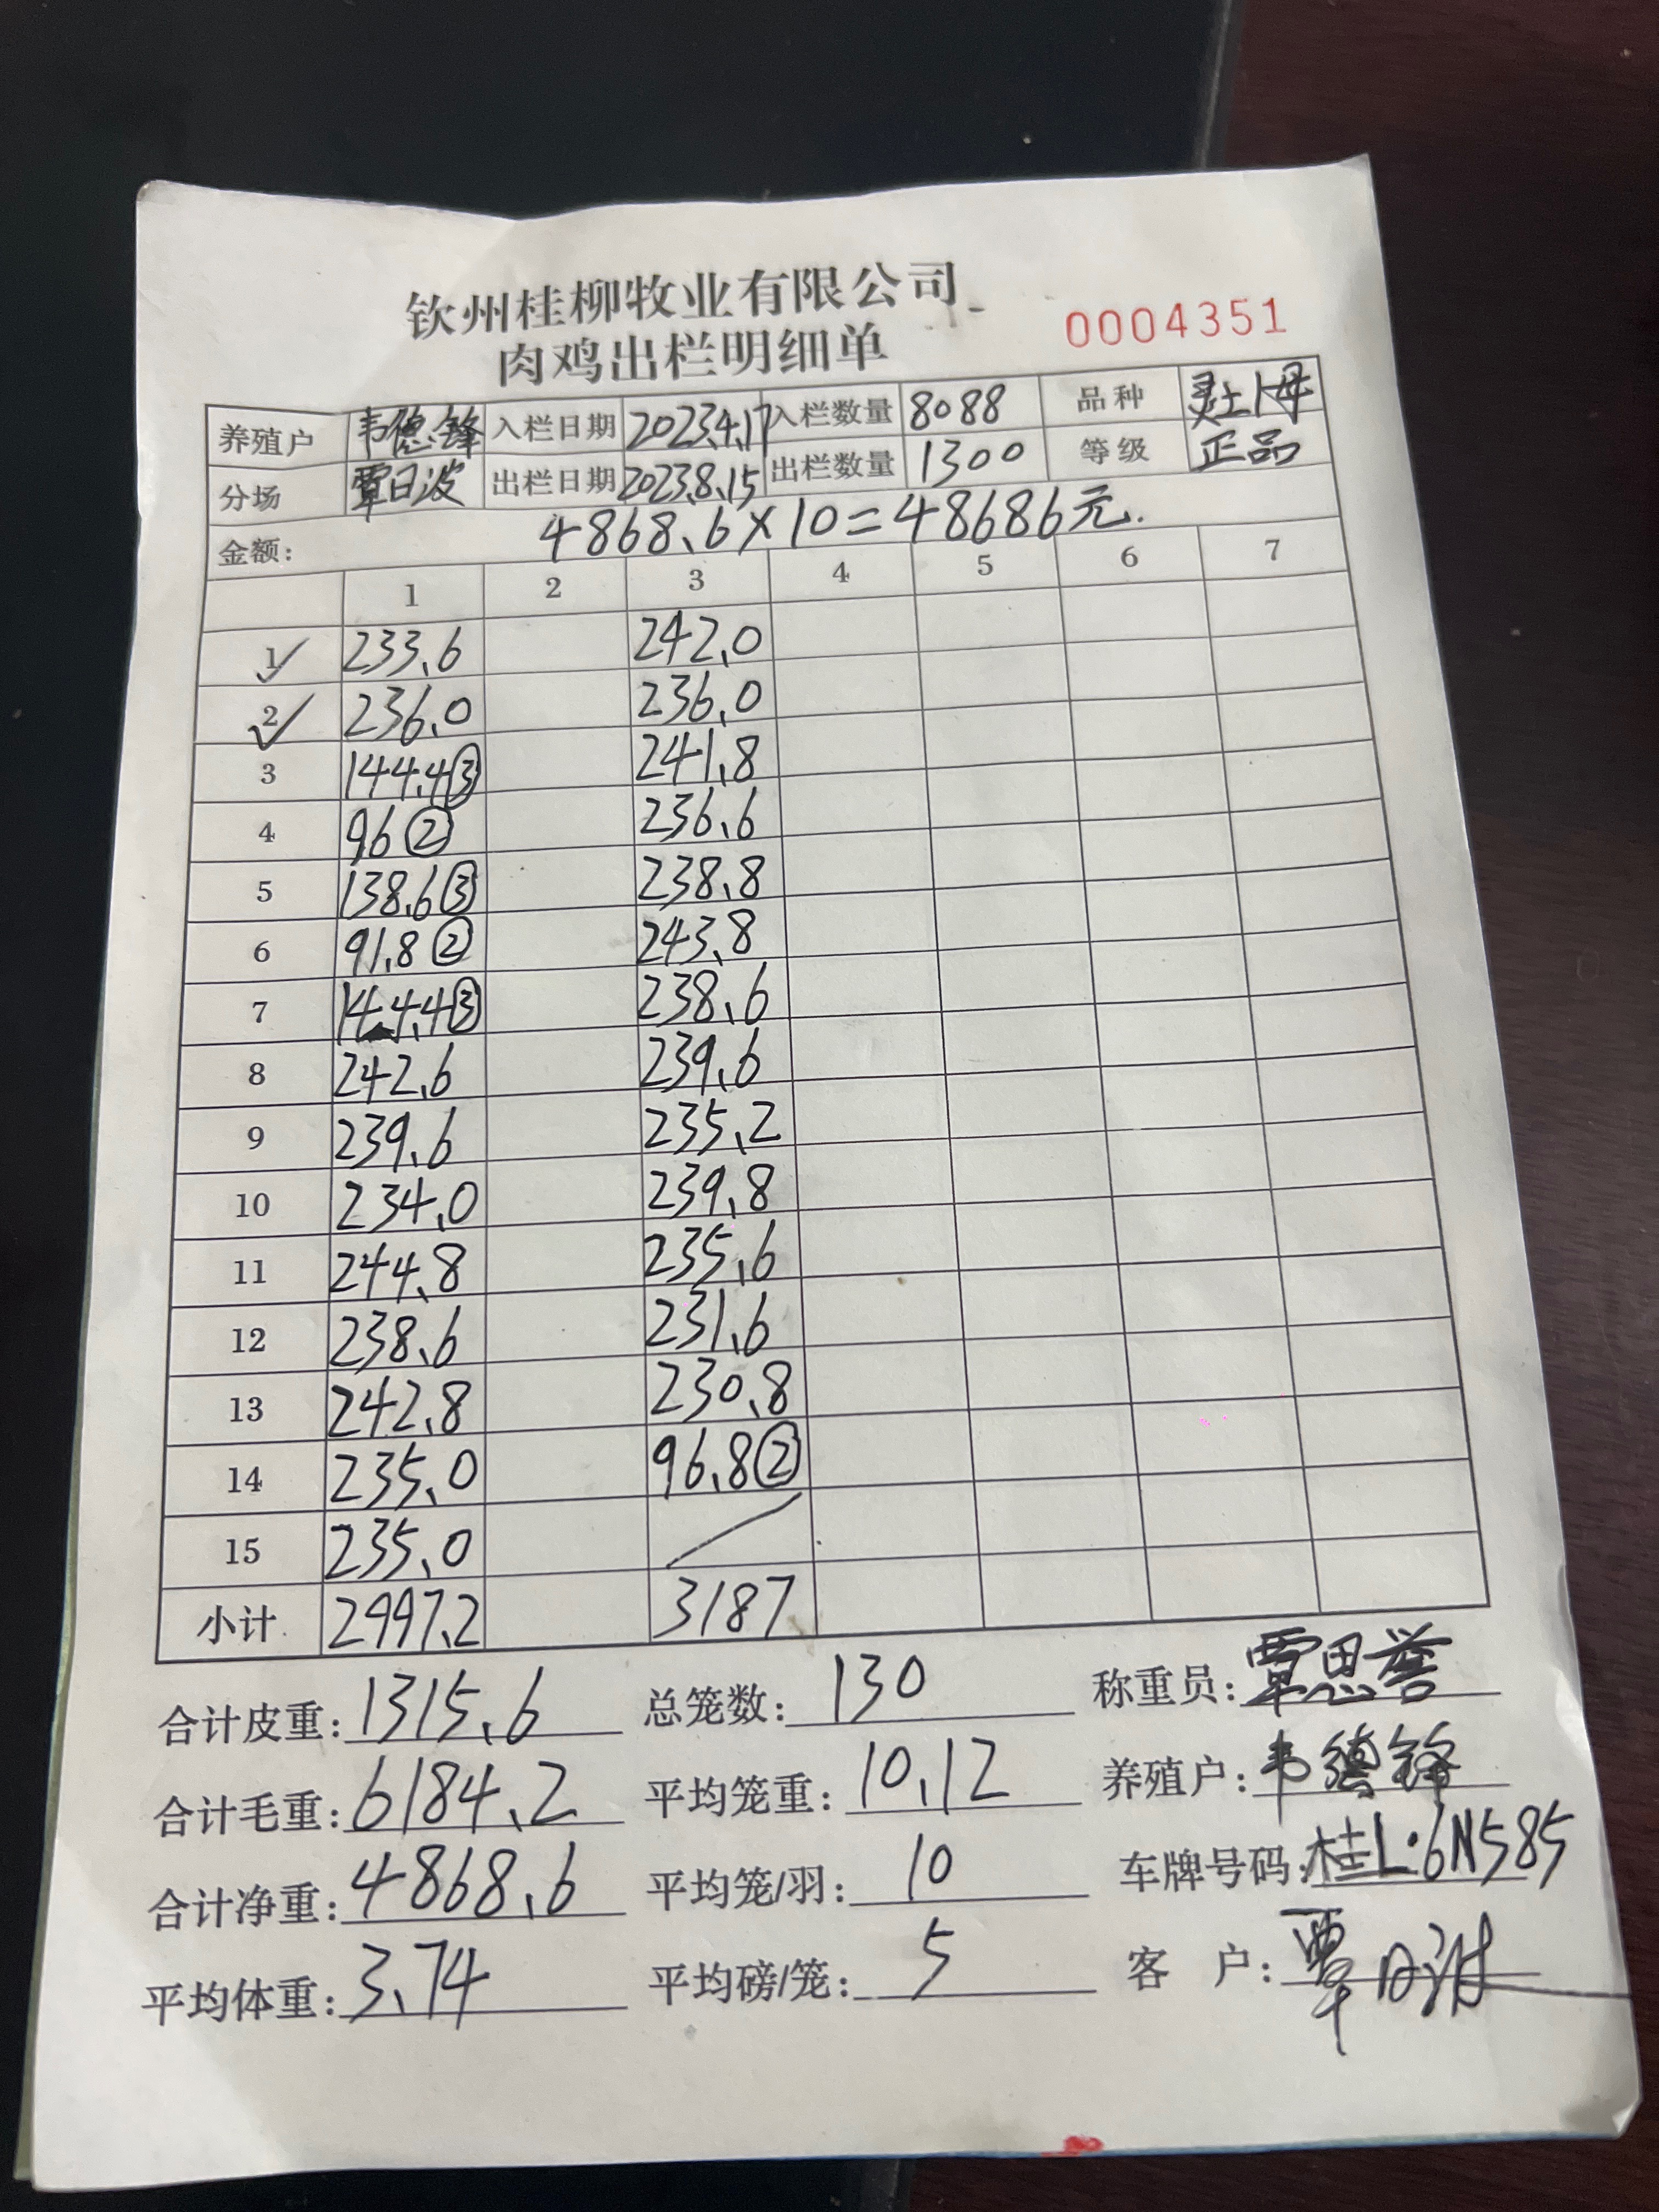 钦州桂柳牧业有限公司
肉鸡出栏明细单 0004351
养殖户 韦德锋 入栏日期 2023.4.17 入栏数量 8088 品种
分场 覃日波 出栏日期 2023.8.15 出栏数量 1300 等级 正品
金额: 4868.6×10=48686元.
1 2 3 4 5 6 7
1 233.6 242.0
2 236.0 236.0
3 144.4③ 241.8
4 96② 236.6
5 138.6③ 238.8
6 91.8② 243.8
7 144.4③ 238.6
8 242.6 239.6
9 239.6 235.2
10 234.0 239.8
11 244.8 235.6
12 238.6 231.6
13 242.8 230.8
14 235.0 96.8②
15 235.0
小计 2997.2 3187
合计皮重: 1315.6 总笼数: 130 称重员: 覃思誉
合计毛重: 6184.2 平均笼重: 10.12 养殖户: 韦德锋
合计净重: 4868.6 平均笼/羽: 10 车牌号码: 桂L·6N585
平均体重: 3.74 平均磅/笼: 5 客 户: 覃日波